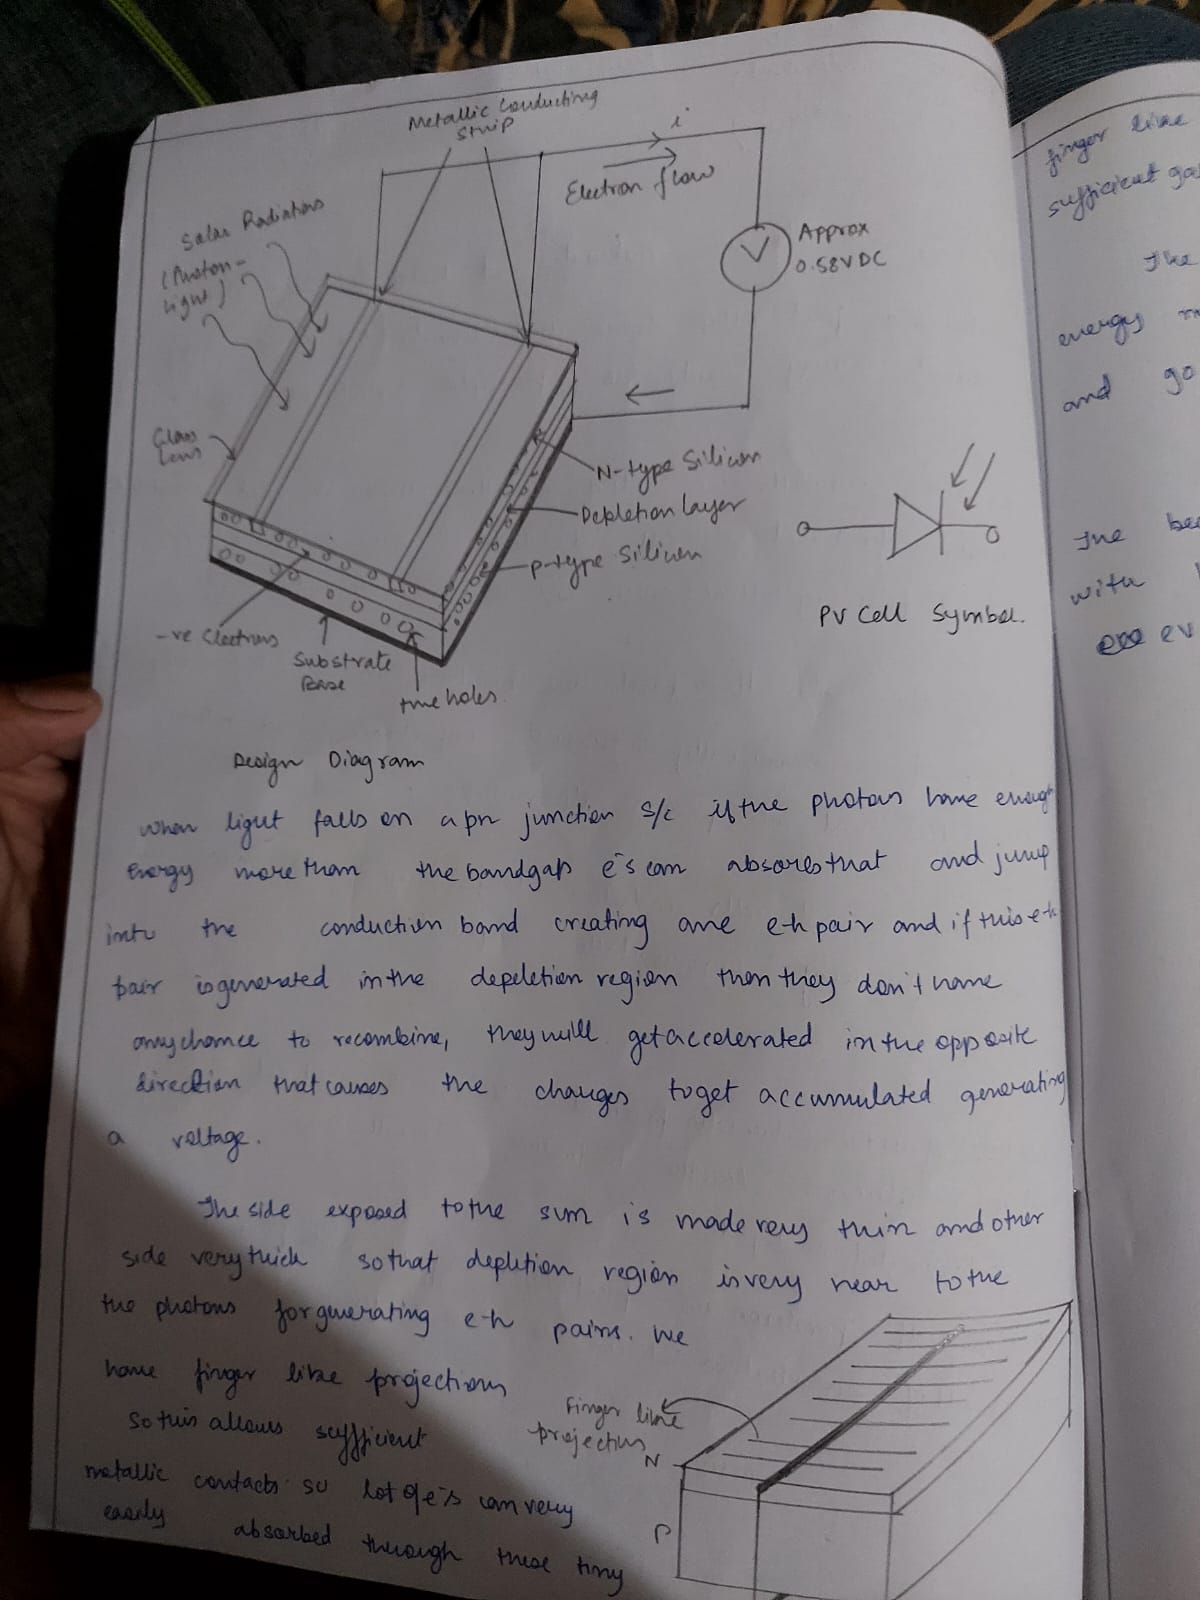 Metallic Conducting
Strip
i
Electron flow
Solar Radiations
(Photon-
Light)
V
Approx
0.58V DC
Glass
Lens
N-type Silicon
Depletion layer
P-type Silicon
-ve Electrons
Substrate
Base
+ve holes
PV Cell Symbol.
Design Diagram
When light falls on a pn junction s/c if the photons have enough
Energy more than the bandgap e's can absorb that and jump
into the conduction band creating one e-h pair and if this e-h
pair is generated in the depeletion region then they don't have
any chance to recombine, they will get accelerated in the opposite
direction that causes the charges to get accumulated generating
a voltage.
The side exposed to the sun is made very thin and other
side very thick so that depletion region is very near to the
the photons for generating e-h pairs. We
have finger like projections
so this allows sufficient
metallic contacts so lot of e's can very
easily absorbed through these tiny
Finger like
projections
N
P
finger like
sufficient
The
energy
and go
The
with
ev